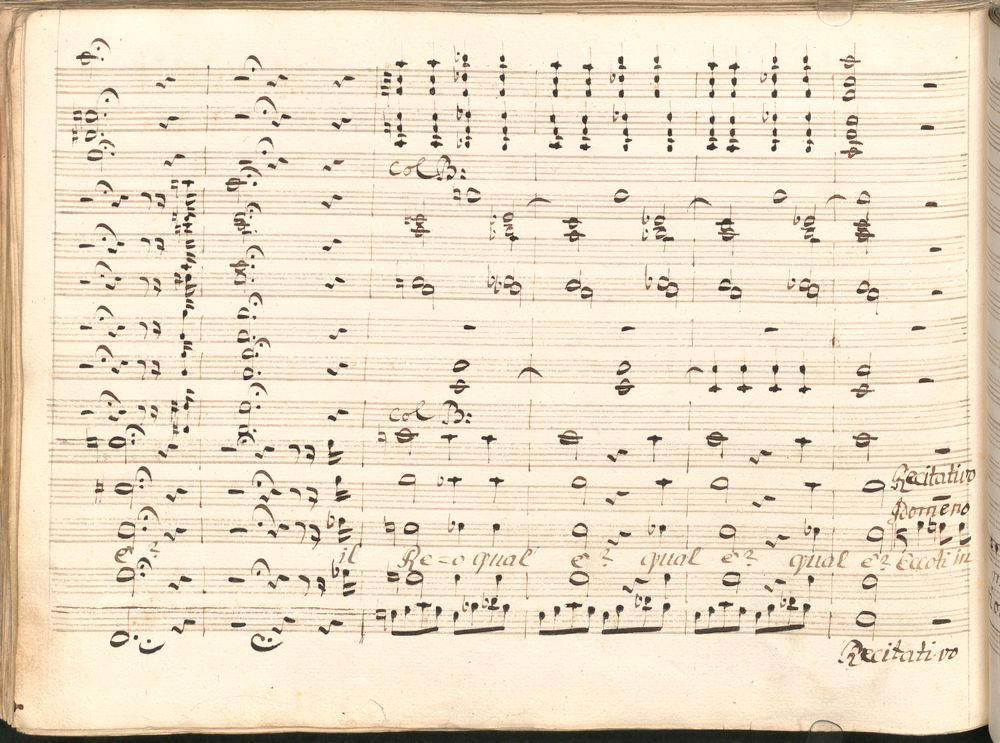 col B:
col B:
Recitativo
Idomeno
è? il Re=o qual è? qual è? qual è? Eccoti in
Recitativo